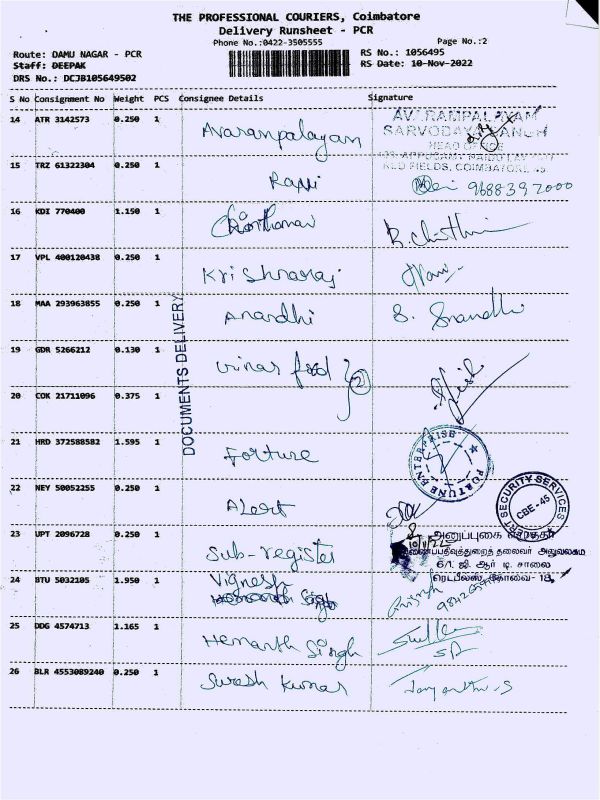 THE PROFESSIONAL COURIERS, Coimbatore
Delivery Runsheet - PCR
Phone No.:0422-3505555 Page No.:2
Route: DAMU NAGAR - PCR RS No.: 1056495
Staff: DEEPAK RS Date: 10-Nov-2022
DRS No.: DCJB105649502
S No Consignment No Weight PCS Consignee Details Signature
14 ATR 3142573 0.250 1 Avarampalayam
AVARAMPALAYAM
SARVODAYA SANGH
HEAD OFFICE
RED FIELDS, COIMBATORE
15 TRZ 61322304 0.250 1 9688397000
16 KDI 770400 1.150 1
17 VPL 400120438 0.250 1 Krishnaraj
18 MAA 293963855 0.250 1 Anandhi
DOCUMENTS DELIVERY
19 GDR 5266212 0.130 1 food 2
20 COK 21711096 0.375 1
21 HRD 372588582 1.595 1 Fortune
FORTUNE ENTERPRISE
22 NEY 50052255 0.250 1 Alert
ALERT SECURITY SERVICES
CBE-45
23 UPT 2096728 0.250 1 Sub-register
அனுப்புகை எழுத்தர்
துணைப்பதிவுத்துறைத் தலைவர் அலுவலகம்
ஜி. ஆர் டி. சாலை
ரெட்பீல்ஸ், கோவை - 18
24 BTU 5032105 1.950 1 Vignesh
25 DDG 4574713 1.165 1 Hemanth Singh
26 BLR 4553089240 0.250 1 Suresh Kumar